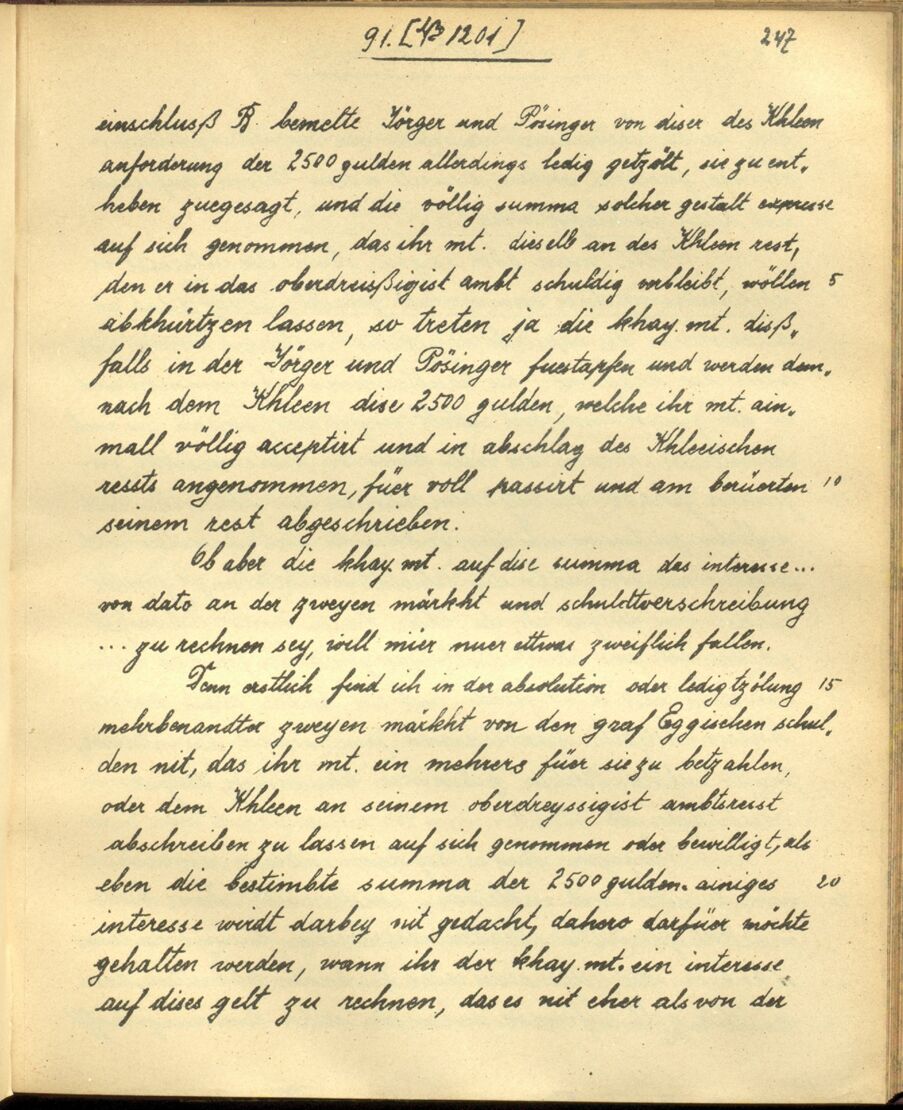 91. [ 1201]
247
einschlusß B. bemelte Jörger und Pösinger von diser des Khleen
anforderung der 2500 gulden allerdings ledig getzölt, sie zu ent„
heben zuegesagt, und die völlig summa solcher gestalt expresse
auf sich genommen, das ihr mt. dieselb an des Khleen rest,
den er in das oberdreisßigist ambt schuldig verbleibt, wöllen 5
abkhürtzen lassen, so treten ja die khay. mt. disß„
falls in der Jörger und Pösinger fuestapfen und werden dem„
nach dem Khleen dise 2500 gulden, welche ihr mt. ain„
mall völlig acceptirt und in abschlag des Khleeischen
ressts angenommen, füer voll passirt und am berüerten 10
seinem rest abgeschrieben.
Ob aber die khay. mt. auf dise summa das interesse...
von dato an der zweyen märkht und schuldtverschreibung
... zu rechnen sey, will mier nuer ettwas zweiflich fallen.
Denn erstlich find ich in der absolution oder ledigtzölung 15
mehrbenandter zweyen märkht von den graf Eggischen schul„
den nit, das ihr mt. ein mehrers füer sie zu betzahlen,
oder dem Khleen an seinem oberdreyssigist ambtsresst
abschreiben zu lassen auf sich genommen oder bewilligt, als
eben die bestimbte summa der 2500 gulden. ainiges 20
interesse wirdt darbey nit gedacht, dahero darfüer möchte
gehalten werden, wann ihr der khay. mt. ein interesse
auf dises gelt zu rechnen, das es nit eher als von der